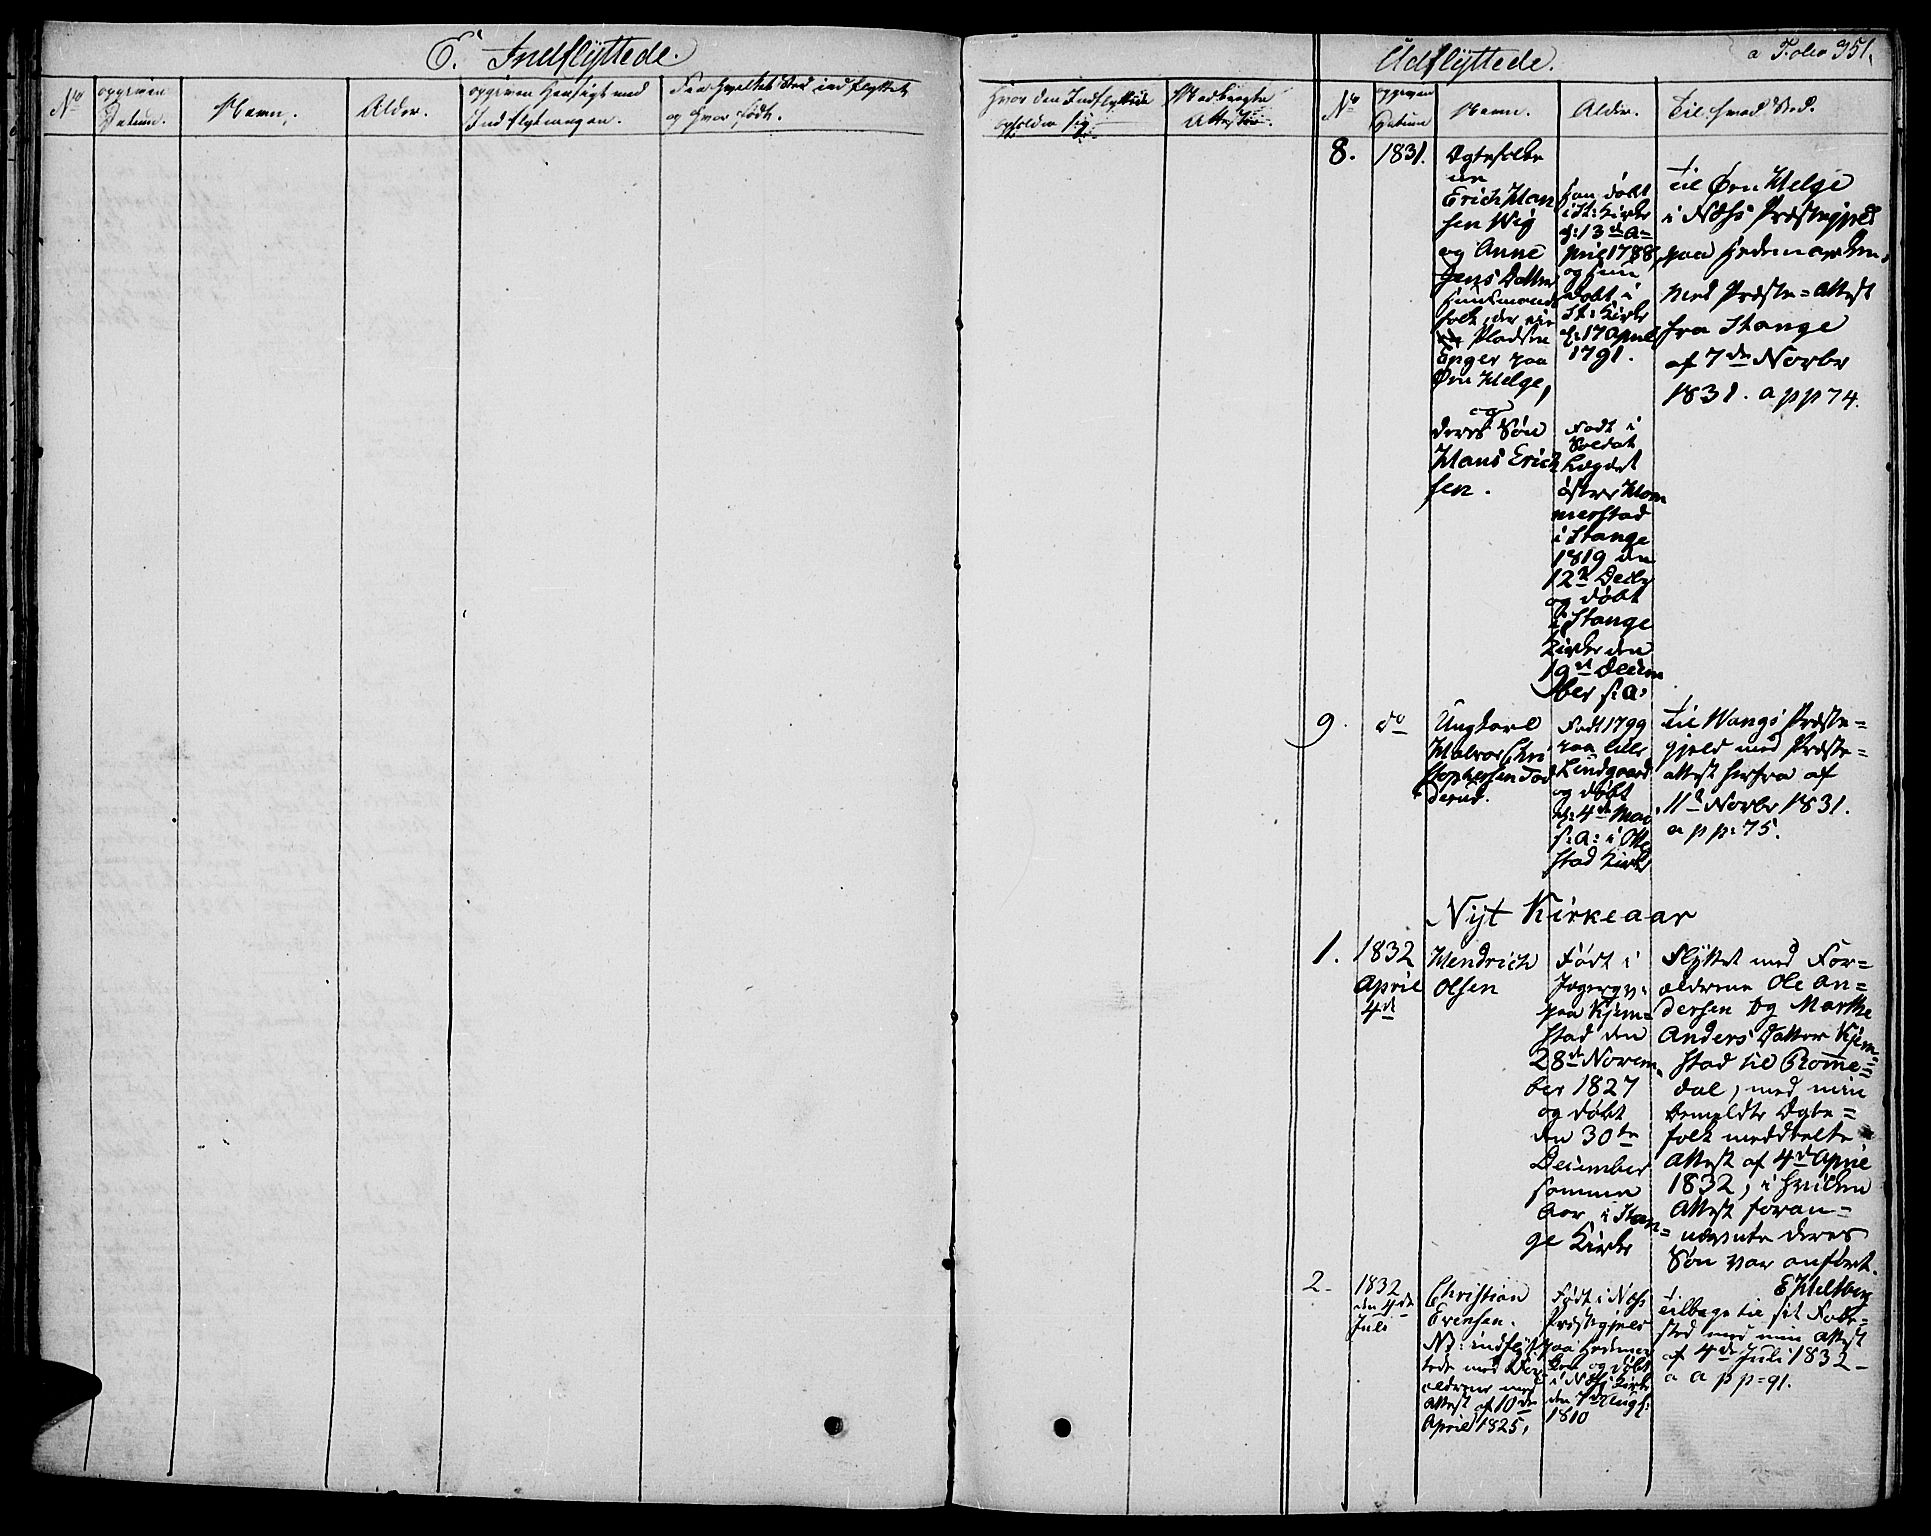 E. Indflyttede.
No
opgiven Datum.
Navn.
Alder.
opgiven Hensigt med
Indflytningen.
Fra hvilket Sted indflyttet
og hvor født.
Hvor den Indflyttede
opholder sig.
Medbragte
Attester.
Udflyttede.
a Folio 351.
No
opgiven
Datum
Navn.
Alder.
Til hvad Sted.
8.
1831.
Ægtefolke
ne
Erich Han
sen Wig
og Anne
Jens Datter
Huusmands
folk, der eie
Pladsen
Enger paa
Øen Helge,
og
deres Søn
Hans Erich
sen.
han døbt
i St: Kirke
d: 13de A=
pril 1788,
og hun
døbt i
St: Kirke
d: 17 April
1791.
Født i
Soldat
Lægdet
østre Hom
merstad
i Stange
1819 den
12te Decbr
og døbt
i Stange
Kirke den
19de Decem
ber s: a.
til Øen Helge
i Næss Præstegjeld
paa Hedemarken,
med Præste=Attest
fra Stange
af 7de Novbr
1831. a pp 74.
9.
do
Ungkarl
Halvor Chri
stophersen Tod
derud.
Født 1799
paa lille
Lindgaard
og døbt
d: 4de Mai
s: a: i Otte
stad Kirke
til Wangs Præste=
gjeld med Præste=
attest herfra af
11te Novbr 1831.
a pp: 75.
Nyt Kirkeaar
1.
1832
April
4de
Hendrich
Olsen
Født i
Jægergv:
paa Kjem=
stad den
28de Novem=
ber 1827
og døbt
den 30te
December
samme
Aar i Stan=
ge Kirke
Flyttet med For=
ældrene Ole An=
dersen og Marthe
Anders Datter Kjem=
stad til Rome=
dal, med min
bemeldte Ægte=
folk meddeelte
Attest af 4de April
1832, i hvilken
Attest foran=
nævnte deres
Søn var anført.
E Heltberg
2.
1832
den 4de
Juli
Christian
Evensen.
NB: indflyt
tede med For
ældrene med
Attest af 10de
April 1825,
Født i Næss
Præstegjeld
paa Hedemar
ken og døbt
i Næss Kirke
den 7de Augst:
1810
tilbage til sit Føde=
sted med min Attest
af 4de Juli 1832 -
a pp=91.